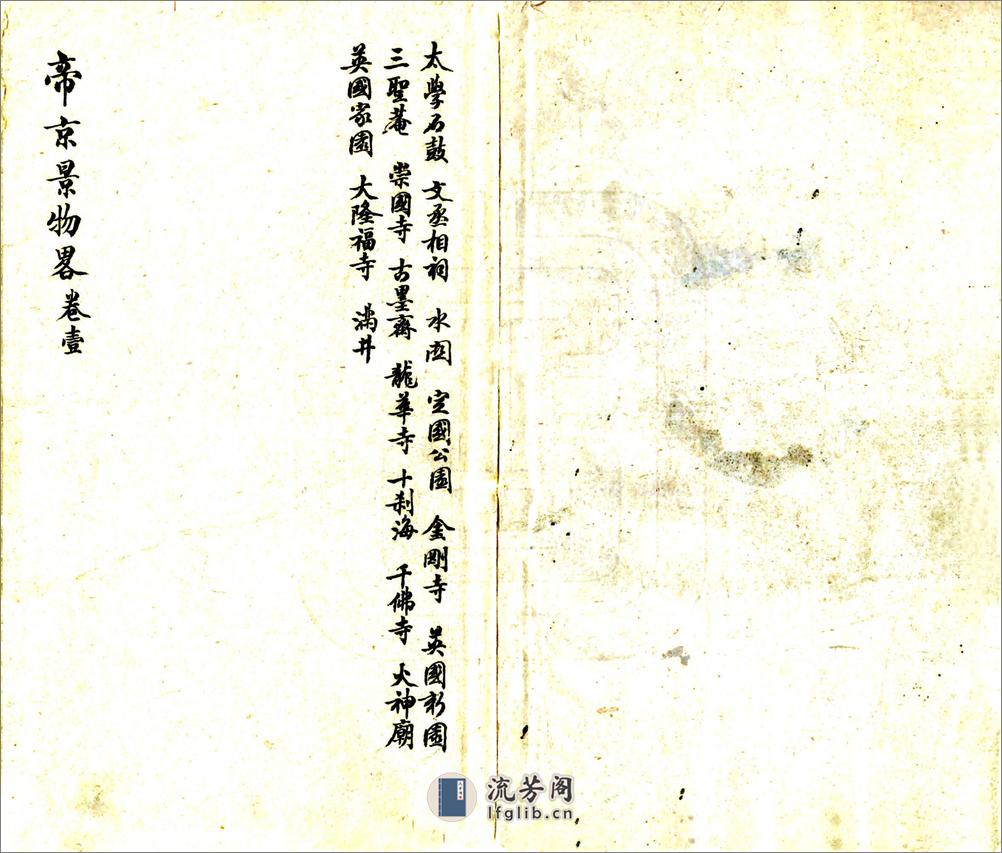 太學石鼓 文丞相祠 水関 定國公園 金剛寺 英國新園
三聖菴 崇國寺 古墨齋 龍華寺 十刹海 千佛寺 火神廟
英國家園 大隆福寺 滿井
帝京景物畧卷壹
流芳阁
lfglib.cn